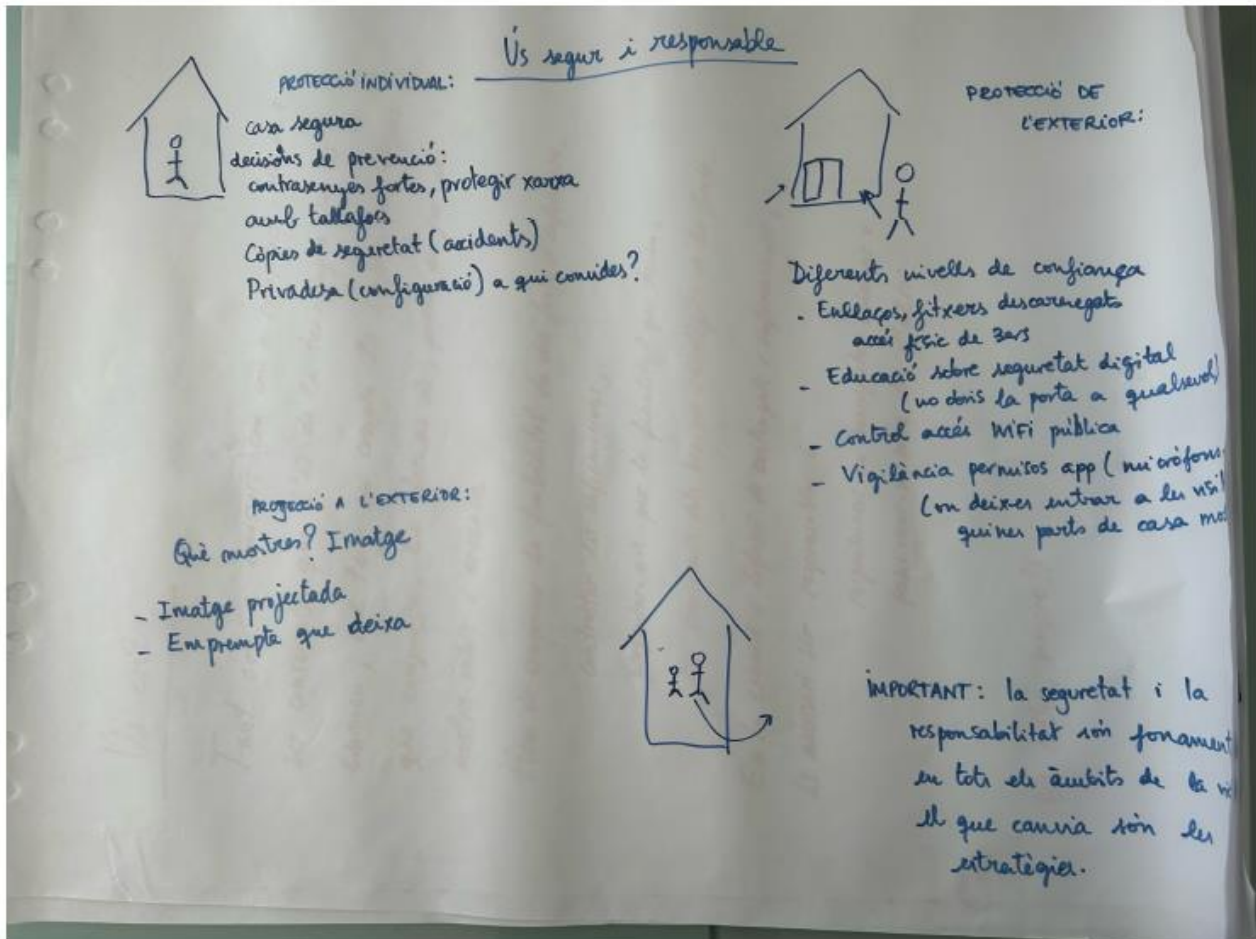 Ús segur i responsable
PROTECCIÓ INDIVIDUAL:
casa segura
decisions de prevenció:
contrasenyes fortes, protegir xarxa
amb tallafocs
Còpies de seguretat (accidents)
Privadesa (configuració) a qui convides?
PROTECCIÓ DE
L'EXTERIOR:
Diferents nivells de confiança
- Enllaços, fitxers descarregats
accés físic de 3ers
- Educació sobre seguretat digital
(no obris la porta a qualsevol)
- Control accés WiFi pública
- Vigilància permisos app (micròfons
(on deixes entrar a les
quines parts de casa
PROJECCIÓ A L'EXTERIOR:
Què mostres? Imatge
- Imatge projectada
- Emprempta que deixa
IMPORTANT: la seguretat i la
responsabilitat són fonament
en tots els àmbits de la
el que canvia són les
estratègies.